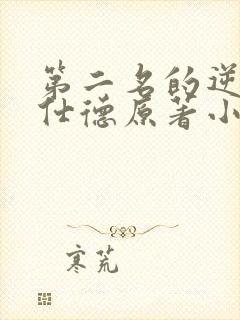 第二名的逆
仕德原著小
寒荒